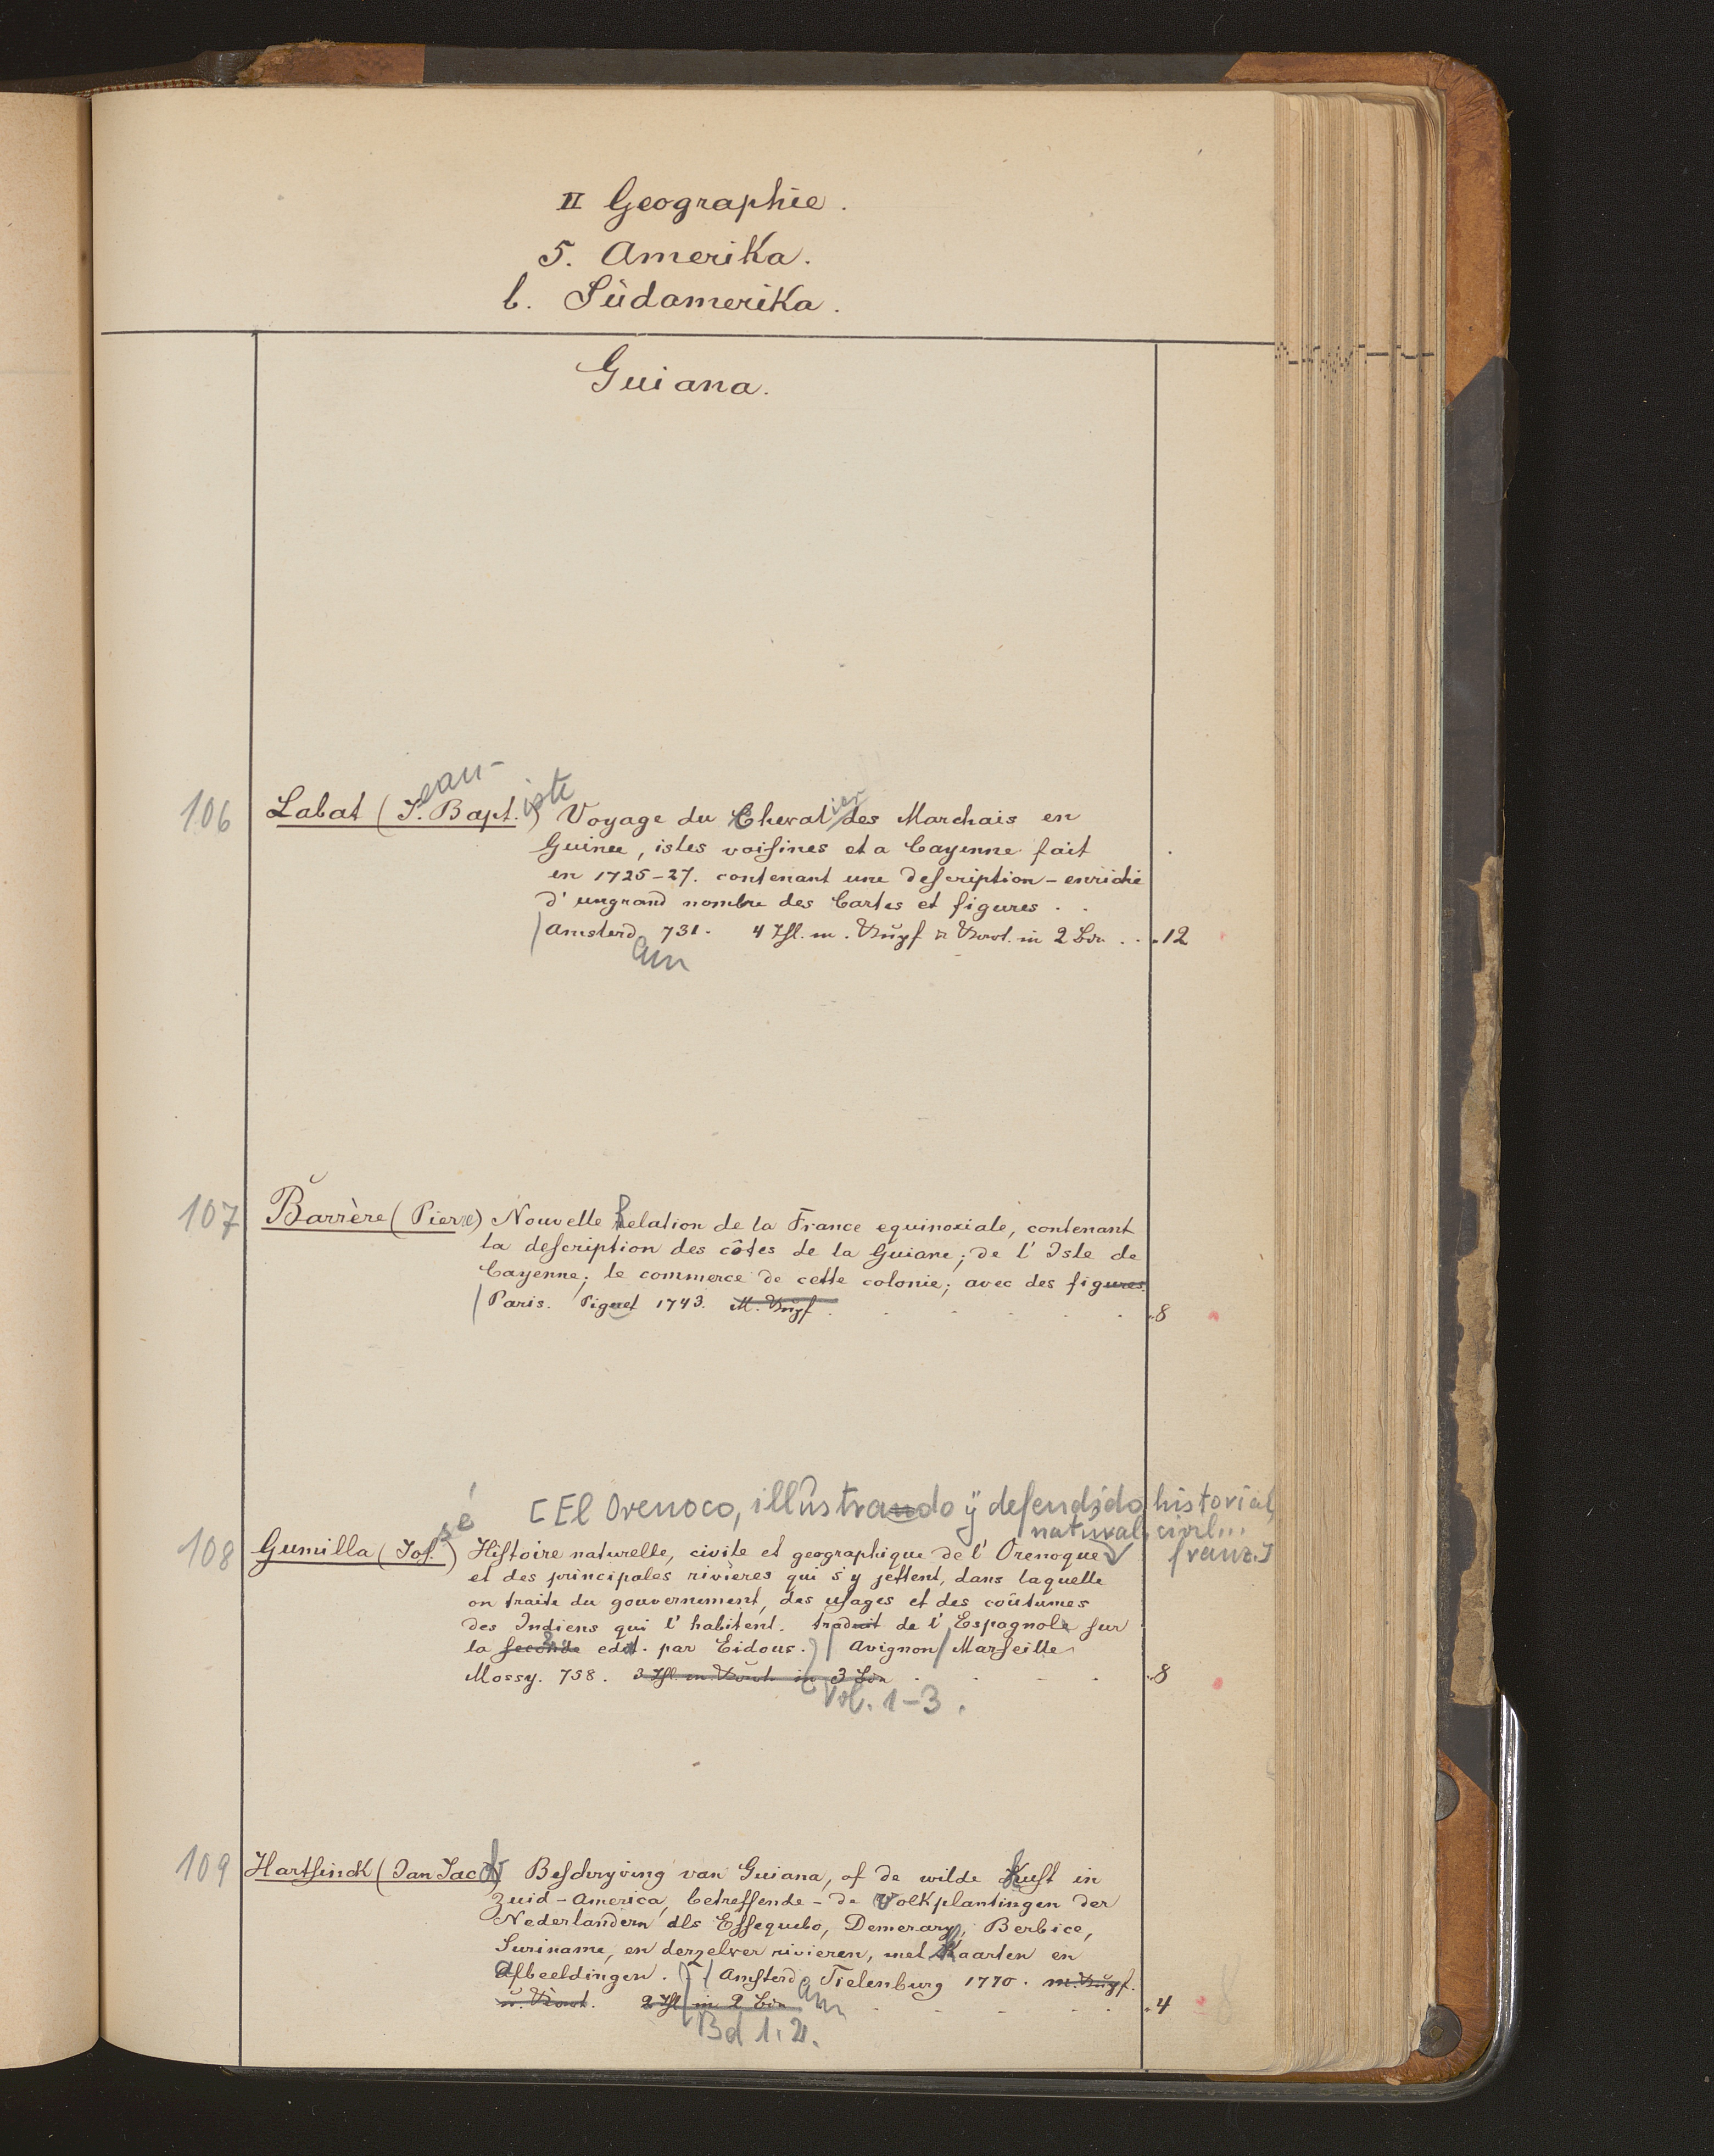 II Geographie.
5. Amerika.
b. Südamerika.
Guiana.
ean-
iste
ier
106 Labat (J. Bapt.) Voyage du Cheval des Marchais en
Guinee, isles voiſines et a Cayenne fait
en 1725-27. contenant une deſcription - enrichi
d'ungrand nombre des Cartes et figures . .
Amsterd 731. 4 Thl. m. Kupf u Kart. in 2 Bdn . . . 12
am
107 Barrère (Pierre) Nouvelle Relation de la France equinoxiale, contenant
la deſcription des côtes de la Guiane; de l'Isle de
Cayenne; le commerce de cette colonie; avec des figures.
Paris. Piguet 1743. M. Kupf . . . . . . 8
[El Orenoco, illustrando ÿ defendido historial,
natural, civil...
franz.]
sé
108 Gumilla (Joſ.) Hiſtoire naturelle, civile et geographique de l'Orenoque
et des principales rivières qui s'y jettent, dans laquelle
on traite du gouvernement, des uſages et des coûtumes
des Indiens qui l'habitent. traduit de l'Espagnole ſur
la ſeconde edit. par Eidous. Avignon Marſeille
Mossy. 758. 3 Thl. m Kart. in 3 Bdn . . . . 8
Vol. 1-3.
109 Hartſinck (Jan Jacob) Beſchryving van Guiana, of de wilde Kuſt in
Zuid-America, betreffende - de Volkplantingen der
Nederlandern als Eſſequebo, Demerary, Berbice,
Suriname, en derzelver rivieren, met Kaarten en
Afbeeldingen. Amſterd Tielenburg 1770. m. Kupf.
u. Kart. 2 Thl in 2 Bdn . . . . . 4
am
Bd 1.2.